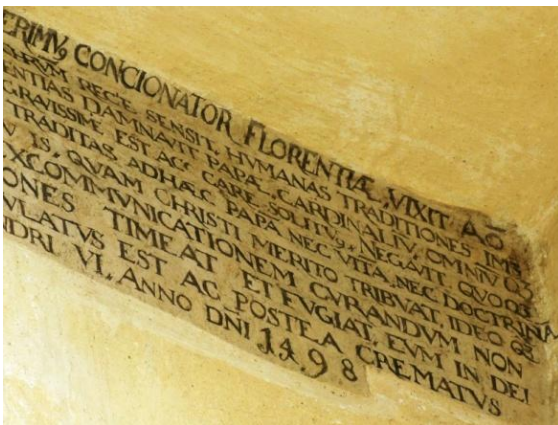 ERIMV9 CONCIONATOR FLORENTIÆ, VIXIT AÕ
RVM RECTE SENSIT, HVMANAS TRADITIONES IMP
ENTIAS DAMNAVIT PAPÆ, CARDINALIV, OMNIV
GRAVISSIME EST AC CARE SOLITV9, NEGAVIT QVOQ3
TRADITAS ADHÆC PAPA NEC VITA, NEC DOCTRINA
V IS, QVAM CHRISTI MERITO TRIBVAT, IDEO
XCOMMVNICATIONEM CVRANDVM NON
ONES TIMEAT ET FVGIAT, EVM IN DEI
VLATVS EST AC POSTEA CREMATVS
NDRI VI, ANNO DNI 1498